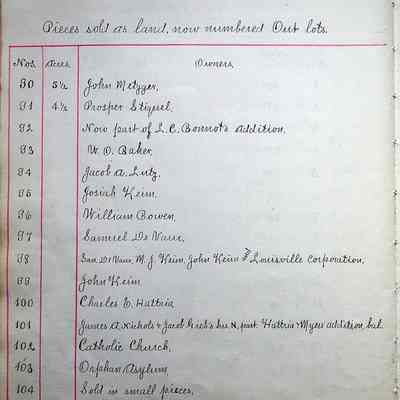 Pieces sold as land, now numbered Out lots.
Nos. Acres Owners.
90 5½ John Metzger.
91 4½ Prosper
92 Now part of L. C. Bonnot's addition.
93 W. O. Baker.
94 Jacob A. Lutz.
95 Josiah Keim.
96 William Bowen.
97 Samuel De Vaux.
98 Sam De Vaux, M. J. Keim, John Keim & Louisville Corporation.
99 John Keim
100 Charles E. Hattria
101 James A. Nichols & Jacob N. part Hattria & Myers addition, bal.
102 Catholic Church.
103 Orphan Asylum
104 Sold in small pieces.